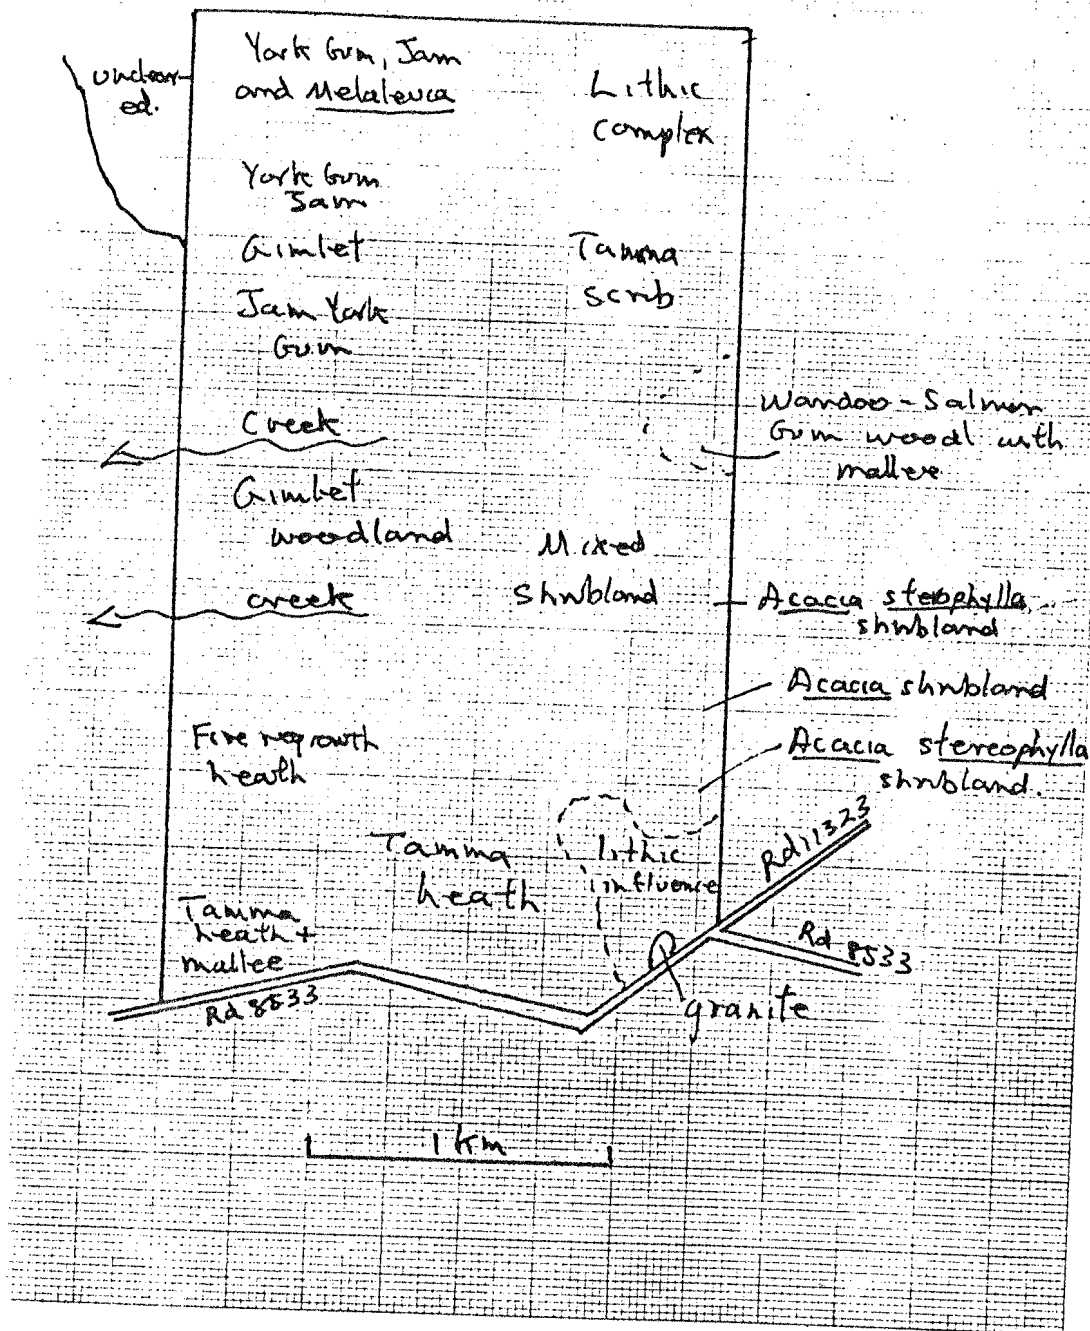 York Gum, Jam
and Melaleuca
unclear-
ed.
Lithic
complex
York Gum
Jam
Gimlet
Tamma
scrub
Jam York
Gum
Creek
Wandoo - Salmon
Gum woodl with
mallee
Gimlet
woodland
Mixed
Shrubland
creek
Acacia sterophylla
shrubland
Acacia shrubland
Fire regrowth
heath
Acacia stereophylla
shrubland.
Tamma
heath
lithic
influence
Rd 11323
Tamma
heath +
mallee
Rd 8533
Rd 8533
granite
1 km